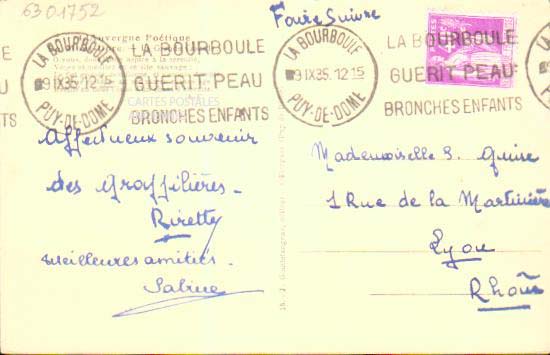 63 01752
Faire Suivre
Auvergne Poétique
LA BOURBOULE
9 IX 35. 12 15
PUY-DE-DOME
LA BOURBOULE
GUERIT PEAU
BRONCHES ENFANTS
LA BOURBOULE
9 IX 35. 12 15
PUY-DE-DOME
LA BOURBOULE
GUERIT PEAU
BRONCHES ENFANTS
CARTES POSTALES
Affectueux souvenir
des
Rirette
meilleures amitiés.
Sabine
Mademoiselle S. Guise
1 Rue de la Martinière
Lyon
Rhône